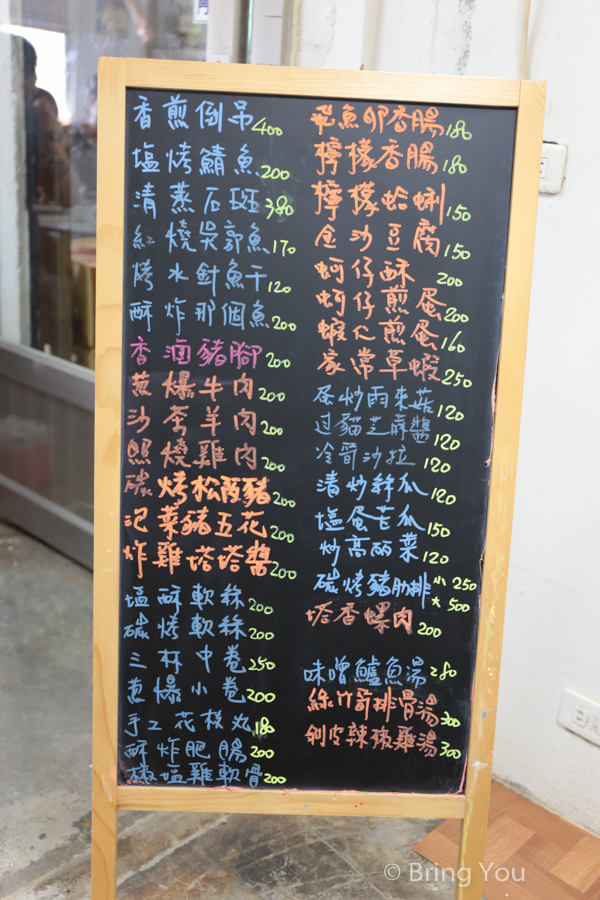 香煎倒吊400
塩烤鯖魚200
清蒸石斑380
紅燒吳郭魚170
烤水針魚干120
酥炸那個魚200
香滷豬腳200
蔥爆牛肉200
沙茶羊肉200
照燒雞肉200
碳烤松阪豬200
泡菜豬五花200
炸雞塔塔醬200
塩酥軟絲200
碳烤軟絲200
三杯中卷250
蔥爆小卷200
手工花枝丸180
酥炸肥腸200
椒塩雞軟骨200
飛魚卵香腸180
檸檬香腸180
檸檬蛤蜊150
金沙豆腐150
蚵仔酥200
蚵仔煎蛋200
蝦仁煎蛋160
家常草蝦250
蛋炒雨來菇120
过貓芝麻醬120
冷筍沙拉120
清炒絲瓜120
塩蛋苦瓜150
炒高丽菜120
碳烤豬肋排 小250
大500
塔香螺肉200
味噌鱸魚湯280
綠竹筍排骨湯300
剝皮辣椒雞湯300
© Bring You